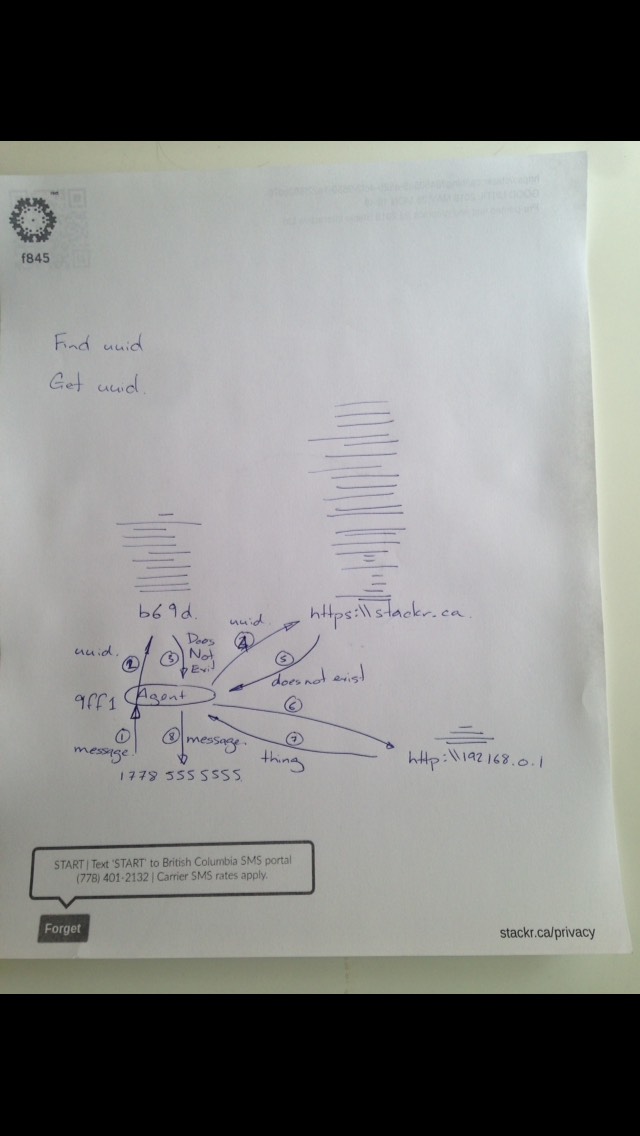 f845
Find uuid
Get uuid.
b69d.
https:\\stackr.ca
uuid.
uuid.
4
2
3
Does
Not
Exist
5
does not exist
9ff1
Agent
6
1
message
8
message.
7
thing
http:\\192168.0.1
1778 555 5555
START | Text 'START' to British Columbia SMS portal
(778) 401-2132 | Carrier SMS rates apply.
Forget
stackr.ca/privacy